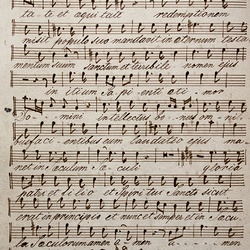 ta te et aequitate redemptionem
misit populo suo mandavit in aeternum testa
mentum suum sanctum et terribile nomen ejus
initium Sapientiae timor
Domini intellectus bonus omni
bus facientibus eum laudatio ejus ma
net in saeculum saeculi gloria
patri et filio et Spiritui Sancto sicut
erat in principio et nunc et semper et in saecu
la saeculorum amen amen